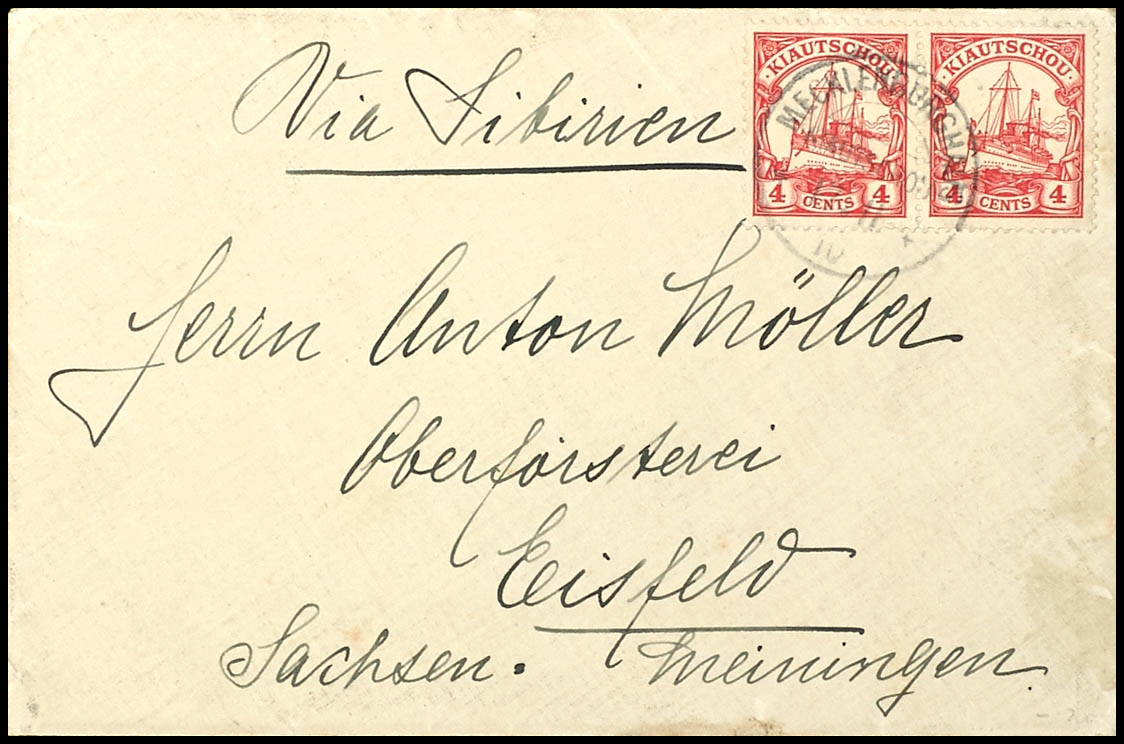 Via Sibirien
KIAUTSCHOU KIAUTSCHOU
4 CENTS 4 4 CENTS 4
MECKLENBURGHAUS
Herrn Anton Möller
Oberförsterei
Eisfeld
Sachsen. Meiningen